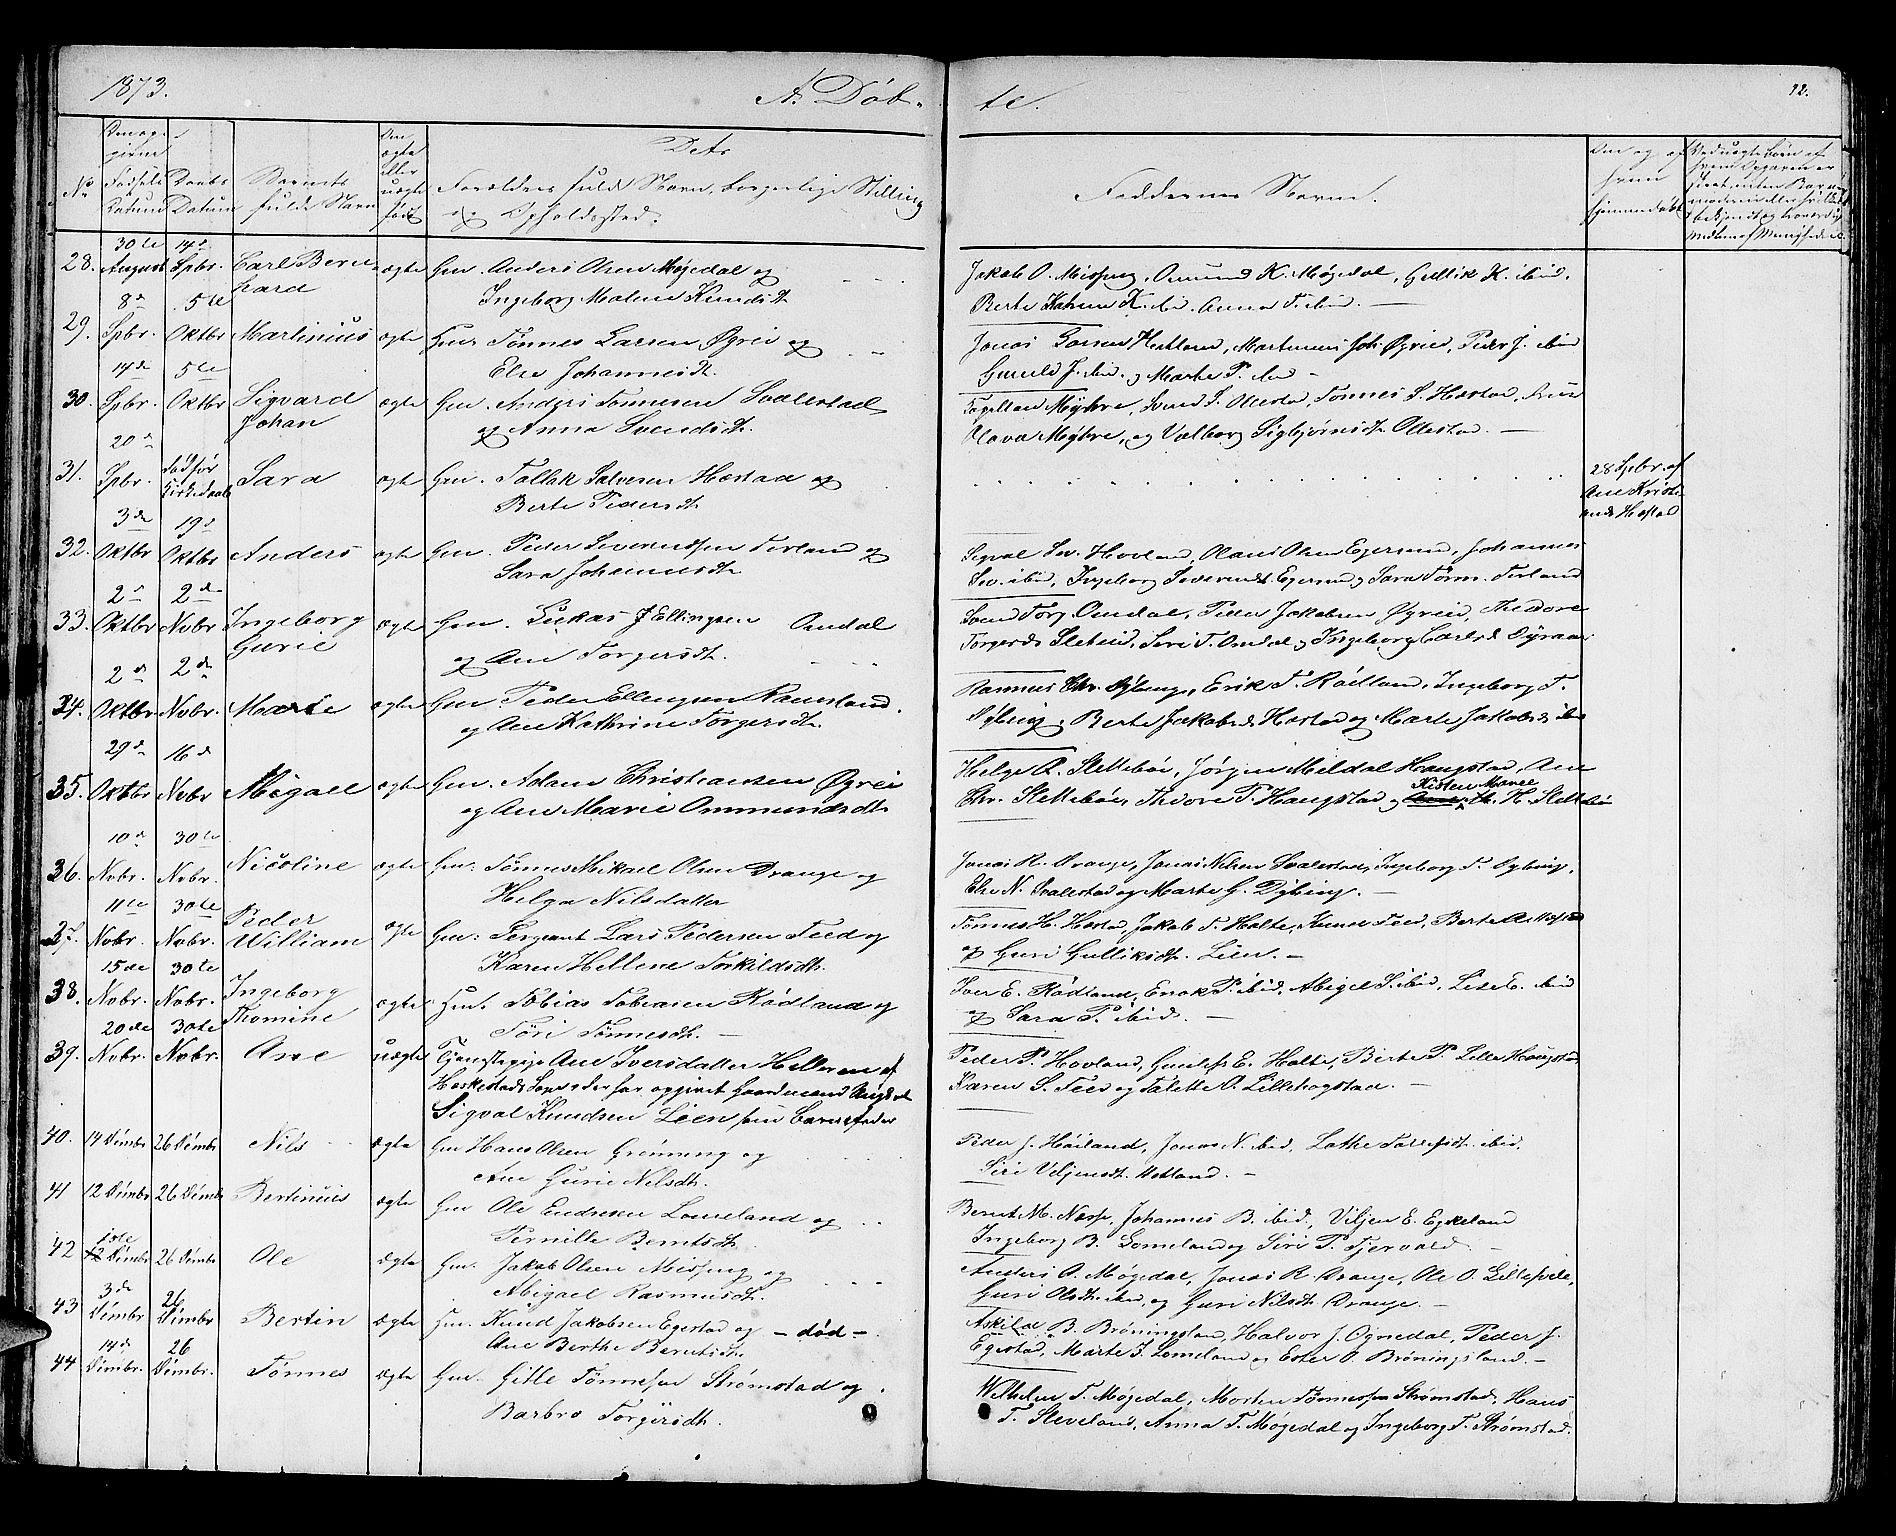 1873.
A. Døb-
te.
12.
No
Den op-
givne
Fødsels
Datum
Daabs
Datum
Barnets
fulde Navn
Om
ægte
eller
uægte
født
Dets
Forældres fulde Navn, borgerlige Stilling
og Opholdssted.
Faddernes Navne.
Om og af
hvem
hjemmedøbt
28. 30te August 14de Spbr. Carl Bern-
hard
ægte Gm. Anders Olsen Møgedal og
Ingeborg Malene Knudsdt.
Jakob O. Missung, Omund K. Møgedal, Gullik K. ibid.
Berte K. ibid. Anna T. ibid. —
29. 8de Spbr. 5te Oktbr Martinius ægte Gm. Tønnes Larsen Øgreid og
Else Johannesdt.
Jonas Hetland, Martinus Joh. Øgreid, Peder J. ibid
Gunild J. ibid. og Marte P. ibid —
30. 14de Spbr. 5te Oktbr Sigvard
Johan
ægte Gm. Anders Tønnesen Svalestad
og Anna Svendsdt.
Myhre, Svend S. Ollestad, Tønnes S. Hæstad,
Olava Myhre, og Valborg Sigbjørnsdt. Ollestad. —
31. 20de Spbr. død før
Kirkedaab
Sara ægte Gm. Tollak Salvesen Hæstad og
Berte Pedersdt.
28 Spbr. af
Ane Kristi-
ansd. Hæstad
32. 3de Oktbr 19de Oktbr Anders ægte Gm. Peder Severindsen Terland og
Sara Johannesdt.
Sigval Sev. Hovland, Olaus Olsen Egersund, Johannes
Sev. ibid, Ingeborg Severinsdt. Egersund og Sara Tørm. Terland
33. 2de Oktbr 2de Nvbr Ingeborg
Gurie
ægte Gm. Lukas J Ellingsen Omdal
og Ane Torgersdt.
Svend Torg. Omdal, Peder Jakobsen Øgreid, Theodore
Torgersd. Sletheid, Seri T. Omdal og Ingeborg Carlsd. Dyraas
34. 2de Oktbr 2de Nvbr. Marte ægte Gm Peder Ellingsen Rausland
og Ane Kathrine Torgersdt.
Rasmus Chr. Dybing, Erik T. Røilland, Ingeborg T.
Dybing, Berte Jakobsd. Hæstad og Marte Jakobsd. ibid
35. 29de Oktbr 16de Nvbr Migael ægte Gm. Adam Christiansen Øgreid
og Ane Marie Ommundsdt.
Helge A. Slettebøe, Jørgen Mildal Haugstad, Ane
Chr. Slettebøe, Thdore T. Haugstad og Kisten Marie H. Slettebø
36. 10de Nvbr. 30te Nvbr. Nicoline ægte Gm: Tønnes Mikael Olsen Drange og
Helga Nilsdatter
Jonas R. Drange, Jonas Nilsen Svalestad, Ingeborg T. Dybing,
Else N. Svalestad og Marte G. Dybing. —
37. 11te Nvbr. 30te Nvbr. Peder
William
ægte Gm: Sergeant Lars Pedersen Feed og
Karen Hellene Torkildsdt.
Tønnes H. Hæstad, Jakob T. Holte, Feed, Berte
og Guri Gulliksdt. Lien. —
38. 15de Nvbr. 30te Nvbr. Ingeborg
Thomine
ægte Gm. Tobias Tobiasen Rødland og
Tøri Tønnesdt. —
Iver E. Rødland, Enok P. ibid, Abigel S. ibid, Lise E. ibid
og Sara P. ibid. —
39. 20de Nvbr. 30te Nvbr. Ane uægte Tjenestepige Ane Iversdatter Helleren af
Heskestads Sogn, der har opgivet Gaardmand Ungkarl
Sigval Knudsen Lien som Barnefader
Peder P. Hovland, Gunlef E. Holte, Berte P. Lille Haugstad
Karen S. Feed og Talette O. Lillehogstad. —
40. 14 Dcmbr 26 Dcmbr Nils ægte Gm Hans Olsen Grønning og
Ane Gurie Nilsdt.
Peder J. Høiland, Jonas N. ibid, Lathe Tollefsdt. ibid.
Siri Viljemsdt. Hetland. —
41 12 Dcmbr 26 Dcmbr Bertinius ægte Gm Ole Endresen Lomeland og
Pernille Berntsdt.
Bernt M. Næss, Johannes B. ibid, Viljen E. Eykeland
Ingeborg B. Lomeland og Siri P. Tjervald. —
42 1ste 12 Dcmbr 26 Dcmbr Ole Ægte Gm. Jakob Olsen Missung og
Abigael Rasmusdt.
Anders O. Møgedal, Jonas R. Drange, Ole O. Gillesvele,
Guri Olsdt. ibid, og Guri Nilsdt. Drange. —
43 3de Dcmbr 26 Dcmbr Bertin ægte Gm. Knud Jakobsen Egestad og — død —
Ane Berthe Berntsdt.
Askild B. Brøningsland, Halvor J. Ognedal, Peder J.
Egestad, Marte J. Lomeland og Ester O. Brøningsland. —
44 14de Dcmbr. 26 Dcmbr. Tønnes ægte Gm. Gitle Tønnessen Strømstad og
Barbro Torgersdt.
Wilhelm T. Møgedal, Morten Tønnessen Strømstad, Hans
T. Sleveland, Anna T. Møgedal og Ingeborg T. Strømstad.